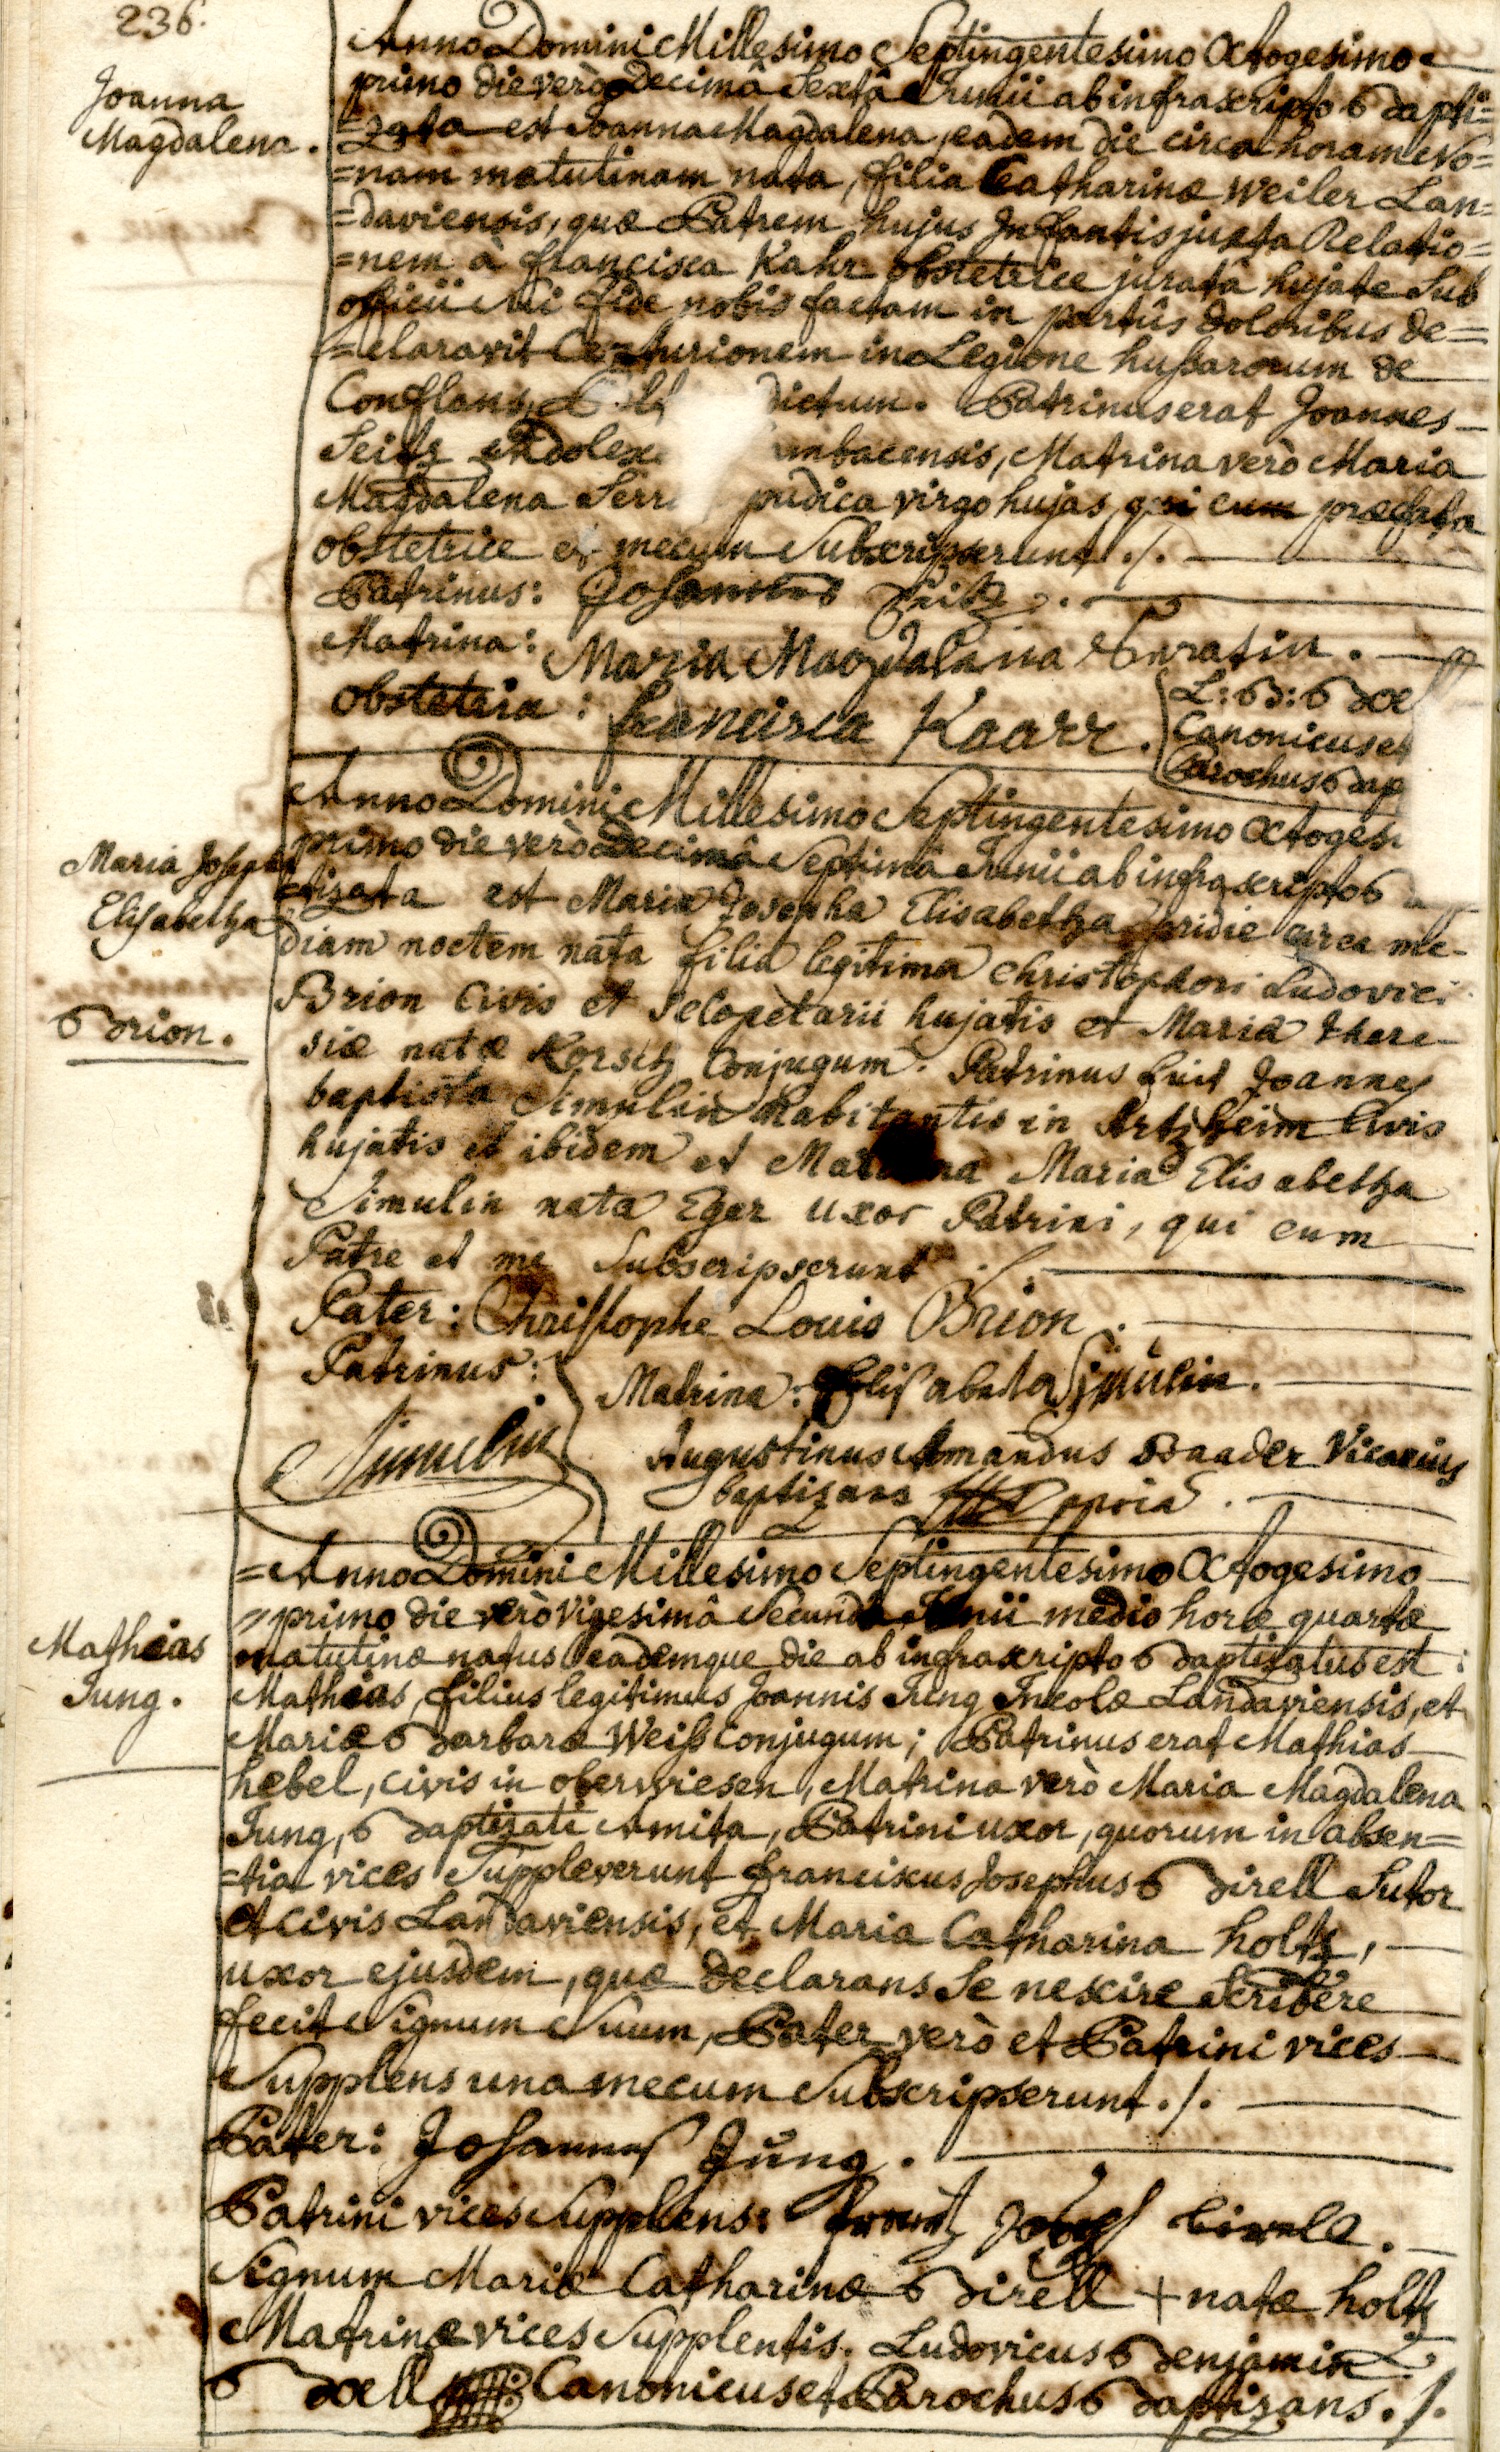 236.
Joanna
Magdalena.
Anno Domini Millesimo Septingentesimo Octogesimo
primo die verò decimâ Sextâ Junii ab infrascripto Bapti=
=zata est Joanna Magdalena, eadem die circa horam No=
=nam matutinam nata, filia Catharinæ Weiler Lan=
=daviensis, quæ Patrem hujus Infantis juxta Relatio=
=nem à francisca Kahr obstetrice juratâ hujate Sub
officii Sui fide nobis factam in partûs doloribus de=
=claravit Centurionem in Legione hussarorum de
Conflans, dictum. Patrinus erat Joannes
Seitz Adolesc mbacensis, Matrina verò Maria
Magdalena Serr pudica virgo hujas, qui cum præfata
obstetrice et mecum Subscripserunt ./.
Patrinus: Johannes Seitz.
Matrina: Maria Magdalena Serratin.
Obstetrix: francisca Kaarr.
L: B: Boe
Canonicus et
Parochus Bap
Maria Joseph
Elisabetha
Brion.
Anno Domini Millesimo Septingentesimo Octogesi
primo die verò decimâ Septimâ Junii ab infrascripto B
tizata est Maria Josepha Elisabetha pridie circa me-
diam noctem nata filia legitima Christophori Ludovici
Brion Civis et Sclopetarii hujatis et Mariæ There-
siæ natæ Korsch Conjugum. Patrinus fuit Joannes
baptista Simulin habitantis in Artzheim Civis
hujatis et ibidem et Ma na Maria Elisabetha
Simulin nata Eger uxor Patrini, qui cum
Patre et me Subscripserunt ./.
Pater: Christophe Louis Brion.
Patrinus:
Simulin
Matrina: Elisabeta Simulin.
Augustinus Amandus Baader Vicarius
baptizans ppria.
Mathias
Jung.
=Anno Domini Millesimo Septingentesimo Octogesimo
=primo die verò vigesimâ Secundâ Junii medio horæ quartæ
matutinæ natus eademque die ab infrascripto Baptizatus est:
Mathias, filius legitimus Joannis Jung Incolæ Landaviensis, et
Mariæ Barbaræ Weiss conjugum; Patrinus erat Mathias
hebel, civis in oberwiesen, Matrina verò Maria Magdalena
Jung, Baptizati Amita, Patrini uxor, quorum in absen=
=tia vices Suppleverunt franciscus Josephus Birell Sutor
et civis Landaviensis, et Maria Catharina holtz,
uxor ejusdem, quæ declarans Se nescire Scribere
fecit Signum Suum, Pater verò et Patrini vices
Supplens una mecum Subscripserunt ./.
Pater: Johannes Jung.
Patrini vices Supplens: frantz Josef birele.
Signum Mariæ Catharinæ Birell + natæ holtz
Matrinæ vices Supplentis. Ludovicus Benjamin
Boell Canonicus et Parochus Baptizans ./.